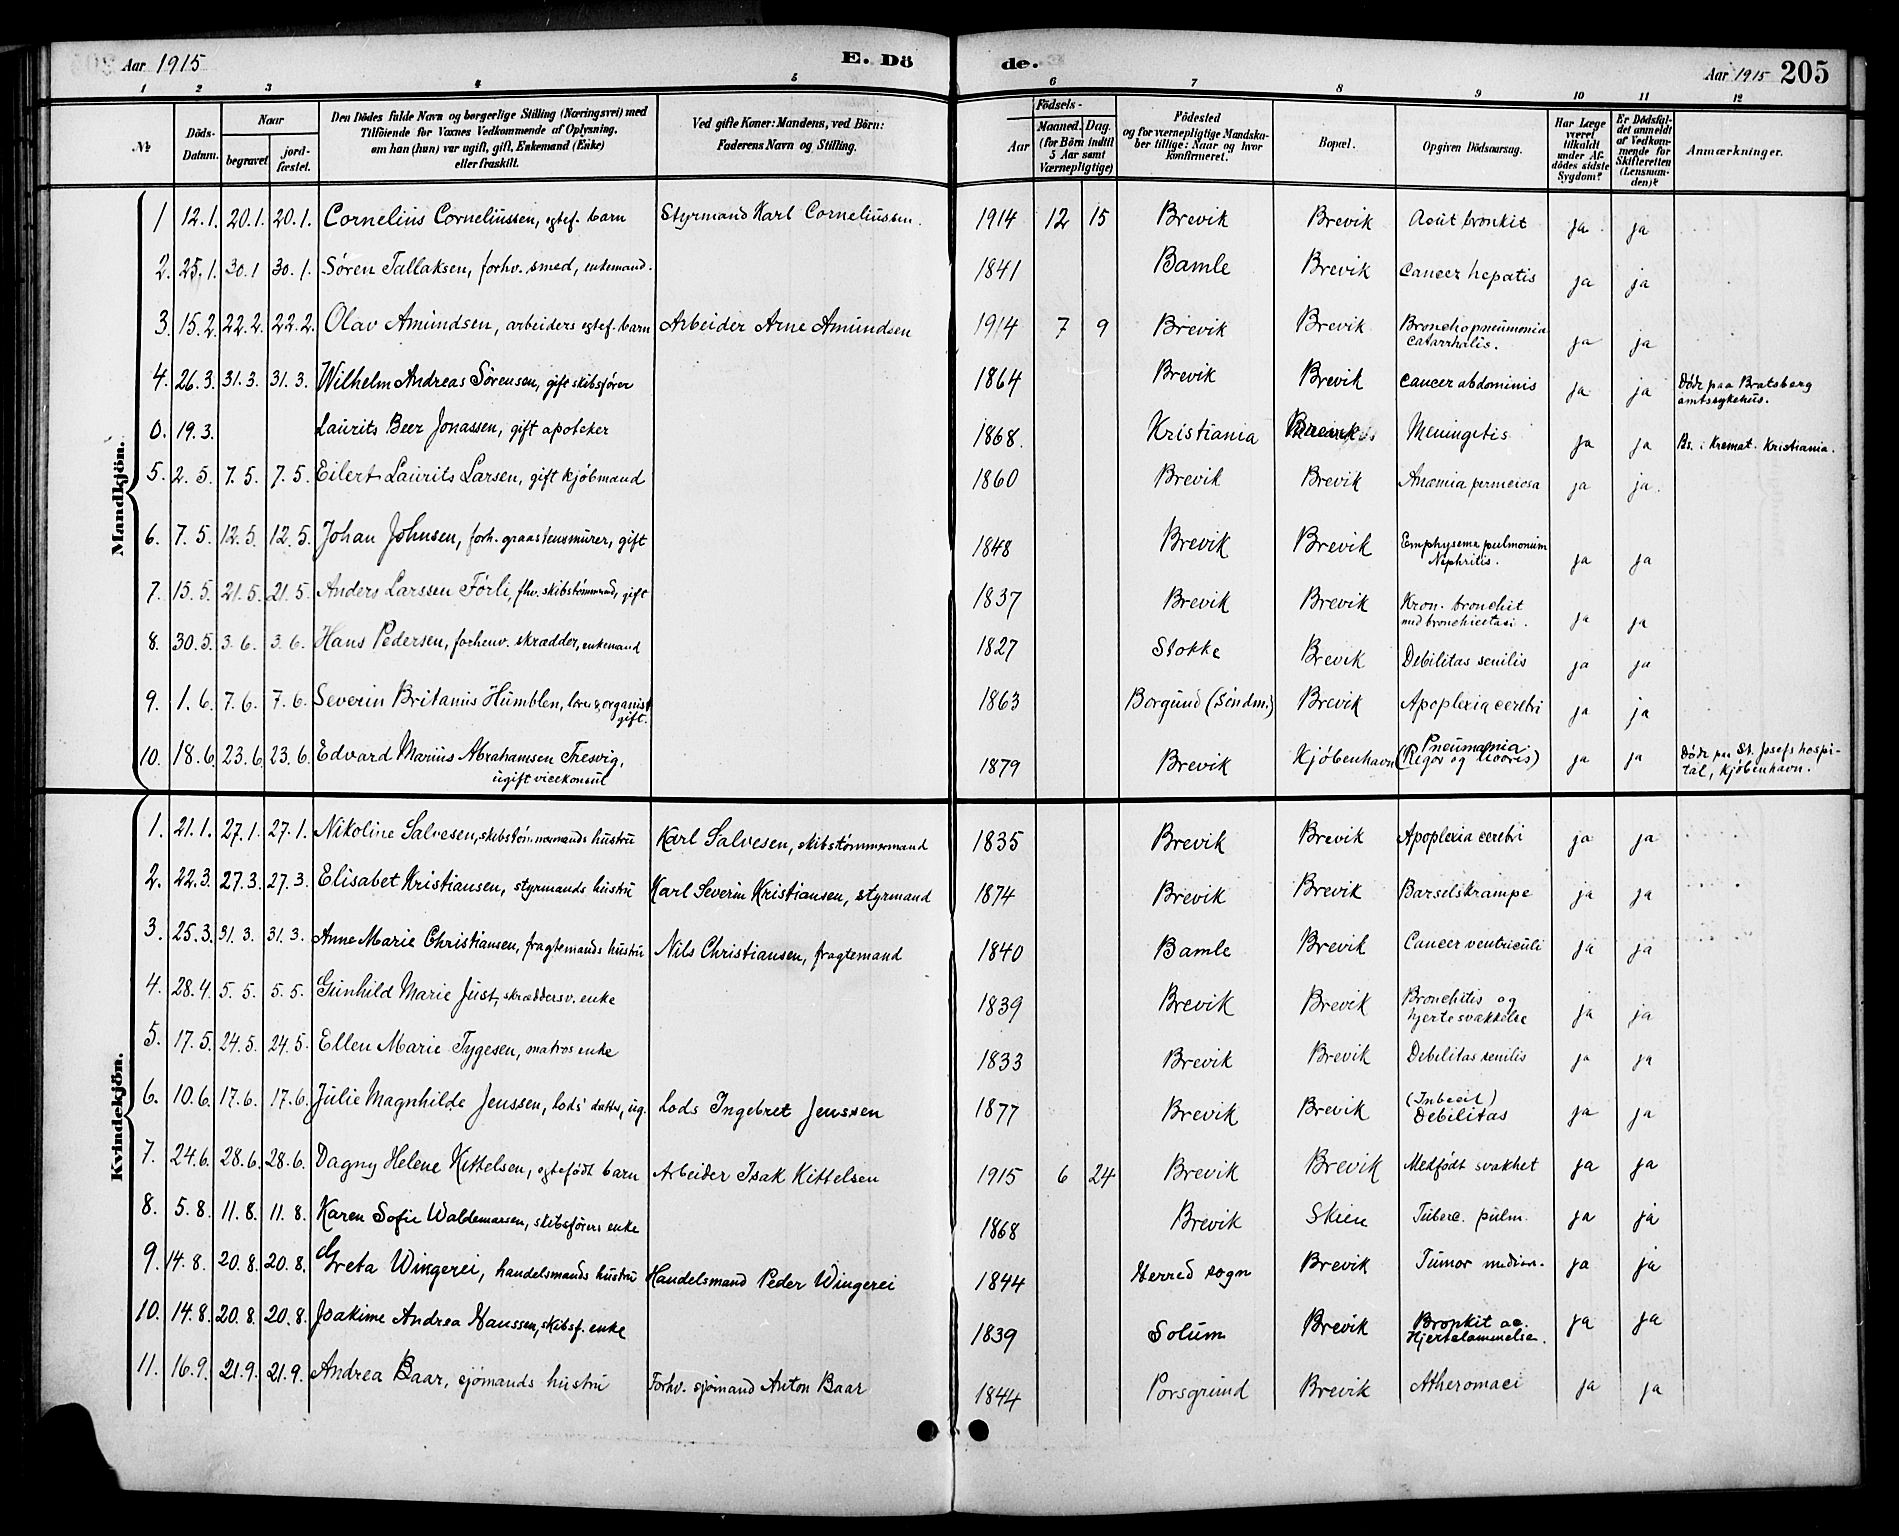 Aar 1915 E. Dö de. Aar 1915 205
1 2 3 4 5 6 7 8 9 10 11 12
№
Döds-
Datum.
Naar
begravet
jord-
fæstet.
Den Dödes fulde Navn og borgerlige Stilling (Næringsvei) med
Tilföiende for Voxnes Vedkommende af Oplysning,
om han (hun) var ugift, gift, Enkemand (Enke)
eller fraskilt.
Ved gifte Koner: Mandens, ved Börn:
Faderens Navn og Stilling.
Födsels-
Aar
Maaned. Dag.
(for Börn indtil
5 Aar samt
Værnepligtige)
Födested
og for værnepligtige Mandska-
ber tillige: Naar og hvor
konfirmeret.
Bopæl.
Opgiven Dödsaarsag.
Har Læge
været
tilkaldt
under Af-
dödes sidste
Sygdom?
Er Dödsfal-
det anmeldt
af Vedkom-
mende for
Skifteretten
(Lensman-
den)?
Anmærkninger.
Mandkjön.
1 12.1. 20.1. 20.1. Cornelius Corneliussen, egtef. barn Styrmand Karl Corneliussen. 1914 12 15 Brevik Brevik Acut bronkit ja ja
2. 25.1. 30.1 30.1. Søren Tallaksen, forhv. smed, enkemand. 1841 Bamle Brevik Cancer hepatis ja ja
3. 15.2. 22.2. 22.2. Olav Amundsen, arbeiders egtef. barn Arbeider Arne Amundsen 1914 7 9 Brevik Brevik Bronchopneumonia
catarrhalis. ja ja
4. 26.3. 31.3. 31.3. Wilhelm Andreas Sørensen, gift skibsfører 1864 Brevik Brevik Cancer abdominis ja ja Døde paa Bratsberg
amtssykehus.
0. 19.3. Laurits Beer Jonassen, gift apoteker 1868. Kristiania Meningitis ja ja Bs. i Kremat. Kristiania.
5. 2.5. 7.5. 7.5. Eilert Laurits Larsen, gift kjøbmand 1860 Brevik Brevik Anæmia perniciosa ja ja.
6. 7.5. 12.5. 12.5. Johan Johnsen, forh. graastensmurer, gift 1848 Brevik Brevik Emphysema pulmonum
Nephritis. ja ja
7. 15.5. 21.5. 21.5. Anders Larssen Førli, fhv. skibstømmmd, gift 1837 Brevik Brevik Kron. bronchit
med bronchiectasi. ja ja
8. 30.5. 3.6. 3.6. Hans Pedersen, forhenv. skrædder, enkemand 1827 Stokke Brevik Debilitas senilis ja ja
9. 1.6. 7.6. 7.6. Severin Britanus Humblen, organist
gift. 1863 Borgund (Söndm.) Brevik Apoplexia cerebri ja ja
10. 18.6. 23.6. 23.6. Edvard Marius Abrahamsen Tresvig,
ugift vicekonsul 1879 Brevik Kjøbenhavn Pneumonia
(Rigor og ) ja ja Døde paa St. Josefs hospi-
tal, Kjøbenhavn.
Kvindekjön.
1. 21.1. 27.1. 27.1. Nikoline Salvesen, skibstømmermands hustru Karl Salvesen, skibstømmermand 1835 Brevik Brevik Apoplexia cerebri ja ja
2. 22.3. 27.3. 27.3. Elisabet Kristiansen, styrmands hustru Karl Severin Kristiansen, styrmand 1874 Brevik Brevik Barselskrampe ja ja
3. 25.3. 31.3. 31.3. Anne Marie Christiansen, fragtemands hustru Nils Christiansen, fragtemand 1840 Bamle Brevik Cancer ventriculi ja ja
4. 28.4. 5.5. 5.5. Gunhild Marie Just, skræddersv. enke 1839 Brevik Brevik Bronchitis og
hjertesvækkelse ja ja
5. 17.5. 24.5. 24.5. Ellen Marie Tygesen, matros enke 1833 Brevik Brevik Debilitas senilis ja ja
6. 10.6. 17.6. 17.6. Julie Magnhilde Jenssen, lods' datter, ug. Lods Ingebret Jenssen 1877 Brevik Brevik (Inbecil)
Debilitas ja ja
7. 24.6. 28.6. 28.6. Dagny Helene Kittelsen, egtefødt barn Arbeider Isak Kittelsen 1915 6 24 Brevik Brevik Medfødt svakhet ja ja
8. 5.8. 11.8. 11.8. Karen Sofie Waldemarsen, skibsførers enke 1868 Brevik Skien Tuberc. pulm. ja ja
9. 14.8. 20.8. 20.8. Greta Wingerei, handelsmands hustru Handelsmand Peder Wingerei 1844 Herred sogn Brevik Tumor ja ja
10. 14.8. 20.8. 20.8. Joakime Andrea Hanssen, skibsf. enke 1839 Solum Brevik Bronkit ac.
Hjertelammelse. ja ja
11. 16.9. 21.9. 21.9. Andrea Baar, sjømands hustru Forhv. sjømand Anton Baar 1844 Porsgrund Brevik Atheromaci ja ja